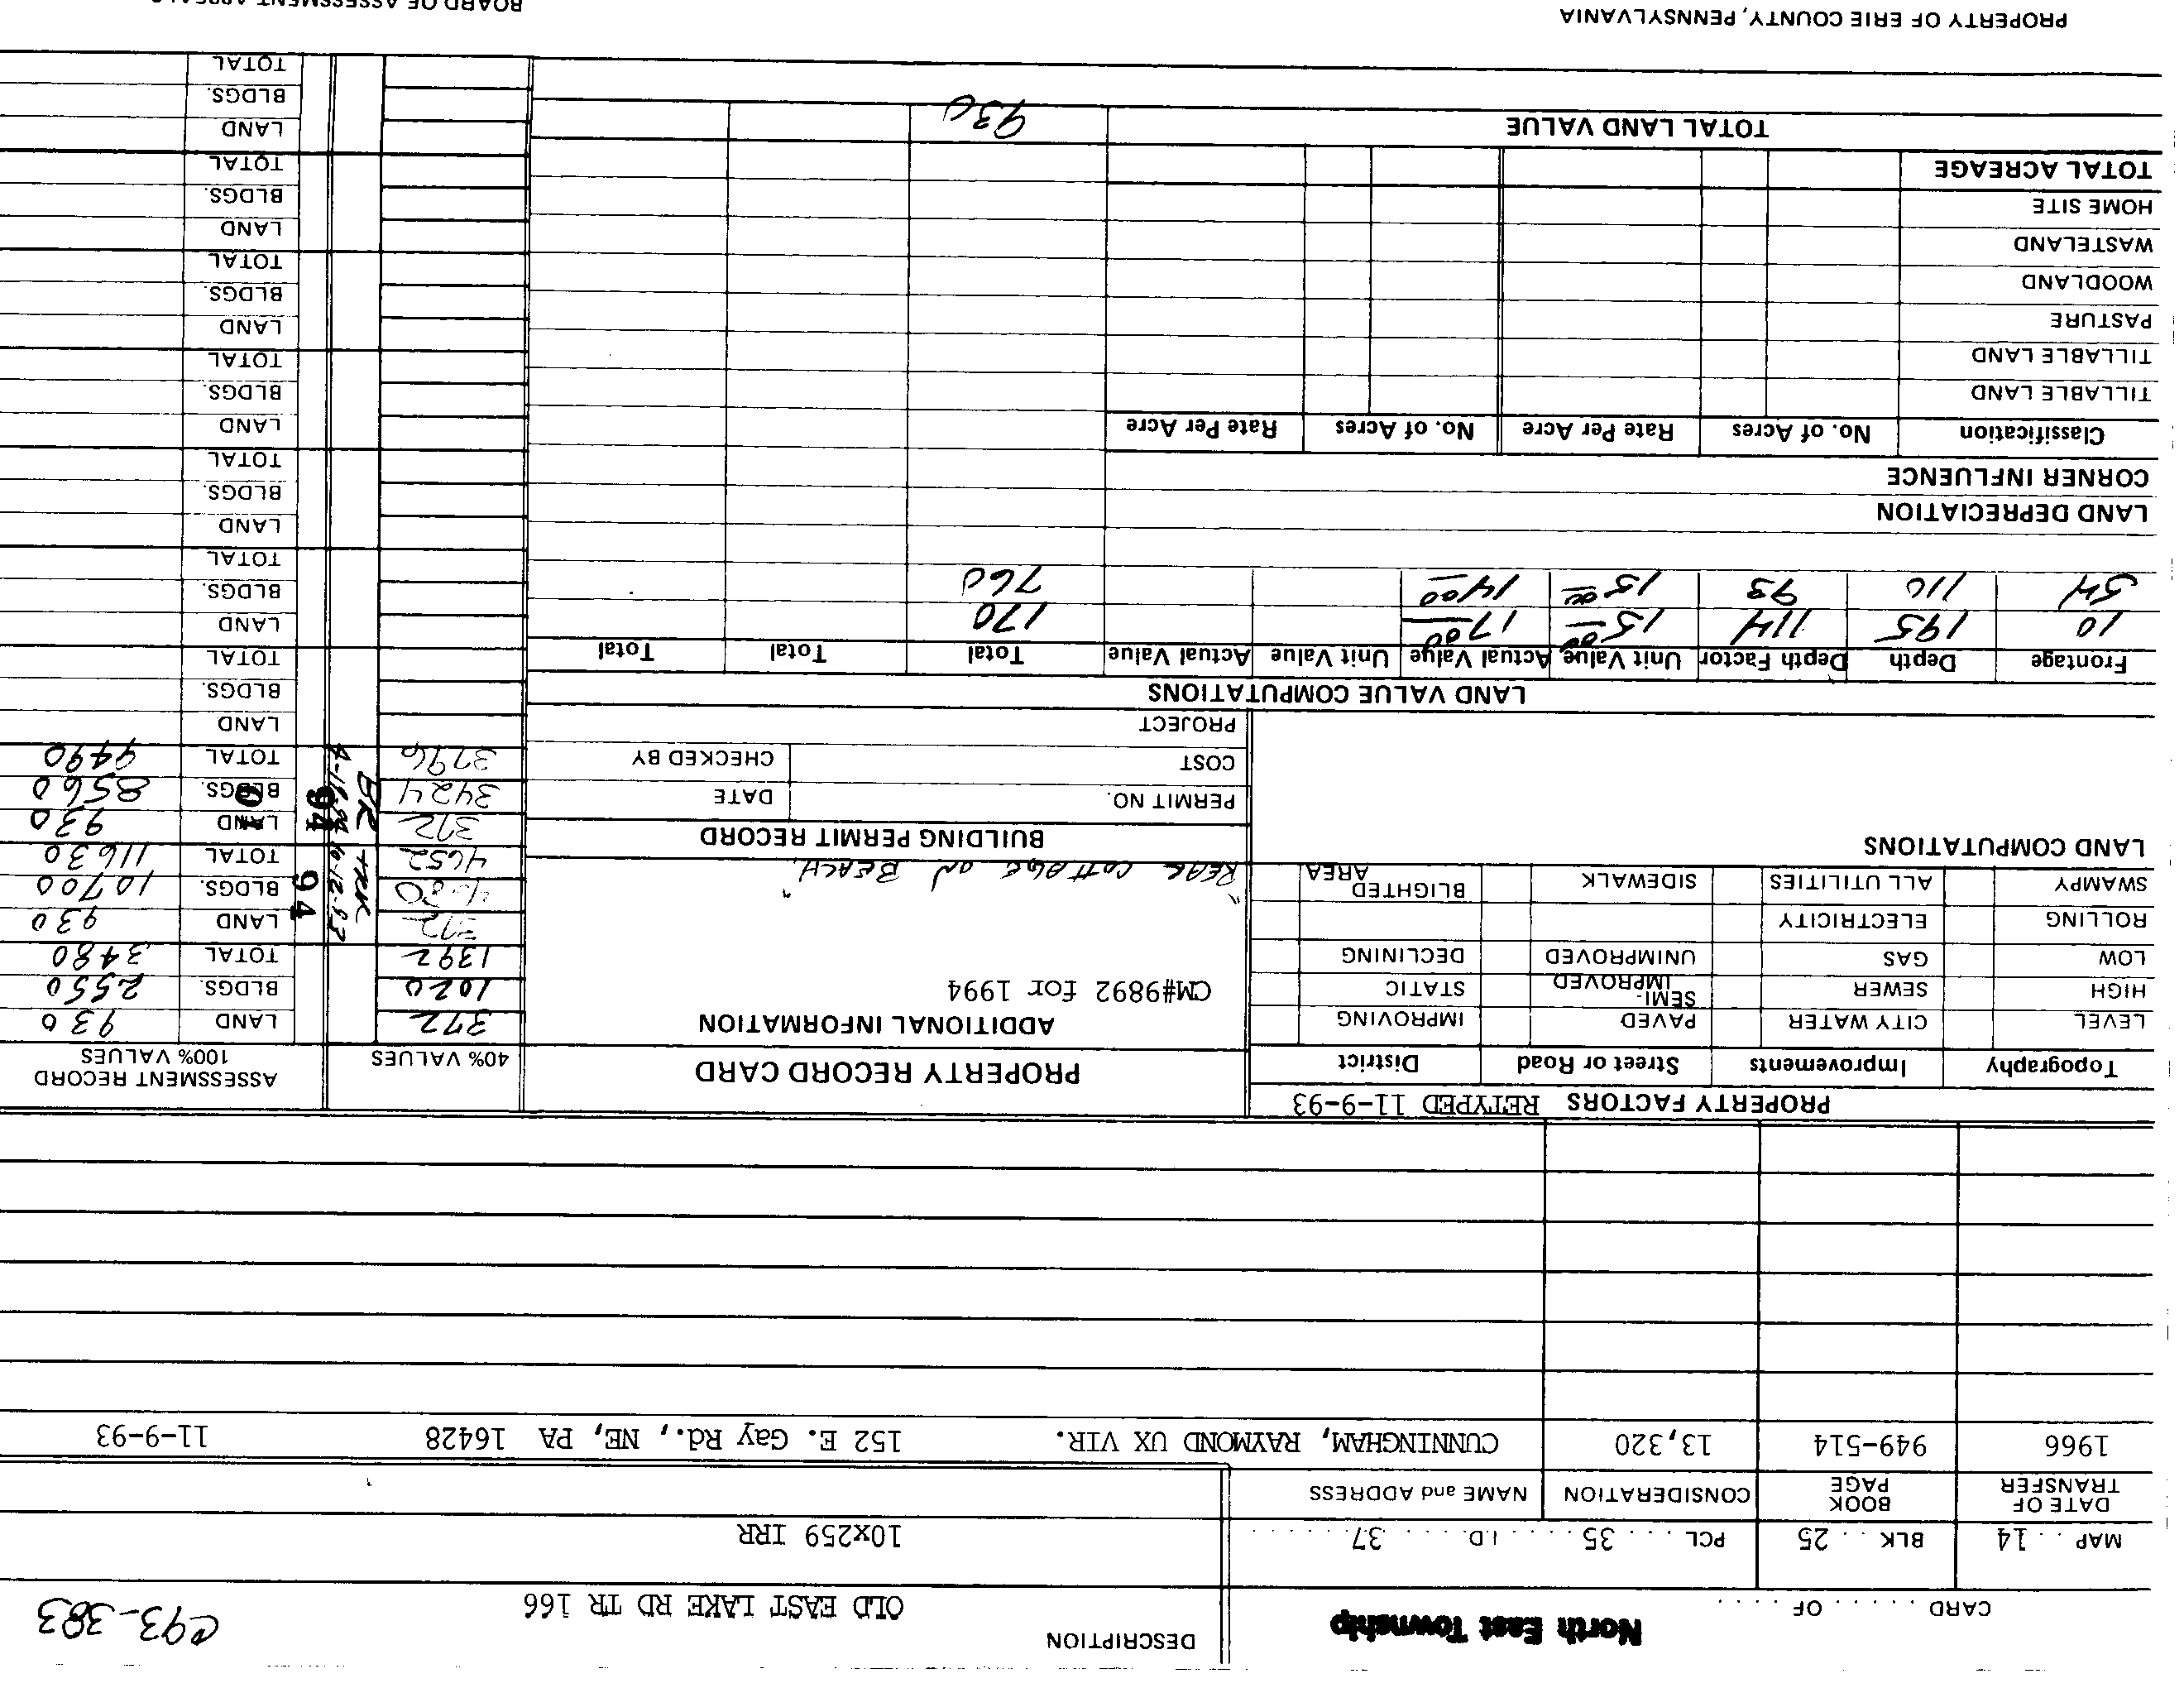 North East Township
DESCRIPTION
CARD ..... OF .....
OLD EAST LAKE RD TR 166
C93-383
MAP . . 14 BLK . . 25 PCL . . . . 35 . . . . I.D. . . . . 37
10x259 IRR
DATE OF TRANSFER BOOK PAGE CONSIDERATION NAME and ADDRESS
1966 949-514 13,320 CUNNINGHAM, RAYMOND UX VIR. 152 E. Gay Rd., NE, PA 16428 11-9-93
PROPERTY FACTORS RETYPED 11-9-93
PROPERTY RECORD CARD
40% VALUES
ASSESSMENT RECORD
100% VALUES
Topography Improvements Street or Road District
LEVEL CITY WATER PAVED IMPROVING
HIGH SEWER SEMI-IMPROVED STATIC
LOW GAS UNIMPROVED DECLINING
ROLLING ELECTRICITY
SWAMPY ALL UTILITIES SIDEWALK BLIGHTED AREA
LAND COMPUTATIONS
ADDITIONAL INFORMATION
CM#9892 for 1994
"REAR COTTAGE ON BEACH"
372 LAND 930
1020 BLDGS. 2550
1392 TOTAL 3480
372 LAND 930
BLDGS. 10700
4652 TOTAL 11630
94
372 LAND 930
3424 BLDGS. 8560
3796 TOTAL 9490
94
BUILDING PERMIT RECORD
PERMIT NO. DATE
COST CHECKED BY
PROJECT
LAND VALUE COMPUTATIONS
Frontage Depth Depth Factor Unit Value Actual Value Unit Value Actual Value Total Total Total
10 195 114 15 00 17 00 170
54 110 93 15 00 14 00 760
LAND DEPRECIATION
CORNER INFLUENCE
Classification No. of Acres Rate Per Acre No. of Acres Rate Per Acre
TILLABLE LAND
TILLABLE LAND
PASTURE
WOODLAND
WASTELAND
HOME SITE
TOTAL ACREAGE
TOTAL LAND VALUE 930
LAND
BLDGS.
TOTAL
LAND
BLDGS.
TOTAL
LAND
BLDGS.
TOTAL
LAND
BLDGS.
TOTAL
LAND
BLDGS.
TOTAL
LAND
BLDGS.
TOTAL
LAND
BLDGS.
TOTAL
PROPERTY OF ERIE COUNTY, PENNSYLVANIA
BOARD OF ASSESSMENT